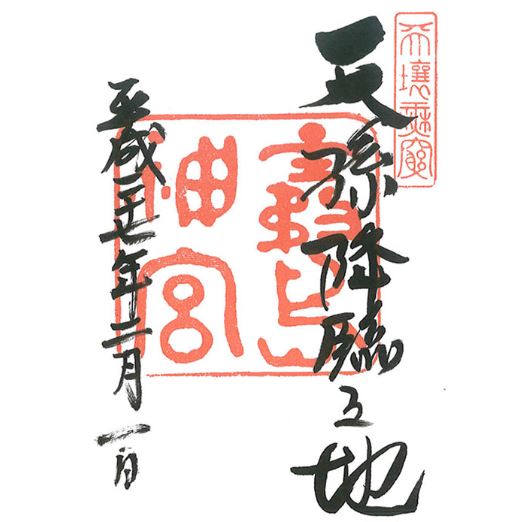 天壤無窮
天孫降臨之地
霧島
神宮
平成二七年二月一日